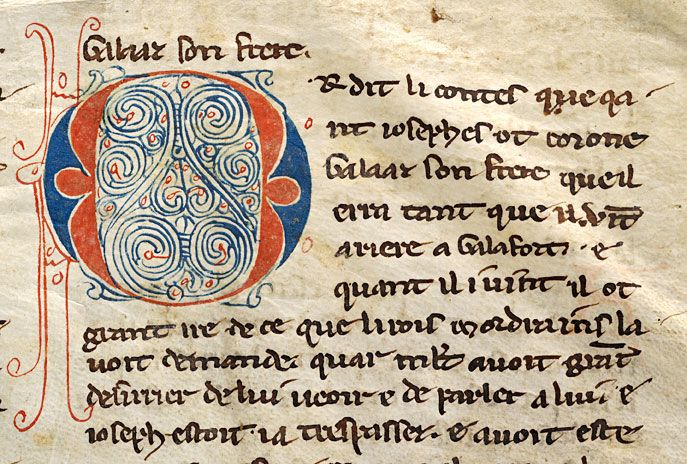 Galaar son frere.
Or dit li contes que qa
nt iosephes ot corone
Galaar son frere que il
erra tant que il vīt
ariere a Galafort. e
quant il i uint il ot
grant ire de ce que li rois mordrains la
uoit demande. quar mlt auoit grāt
desirrier de lui ueoir e de parler a lui e
ioseph estoit ia trespasser. e auoit este